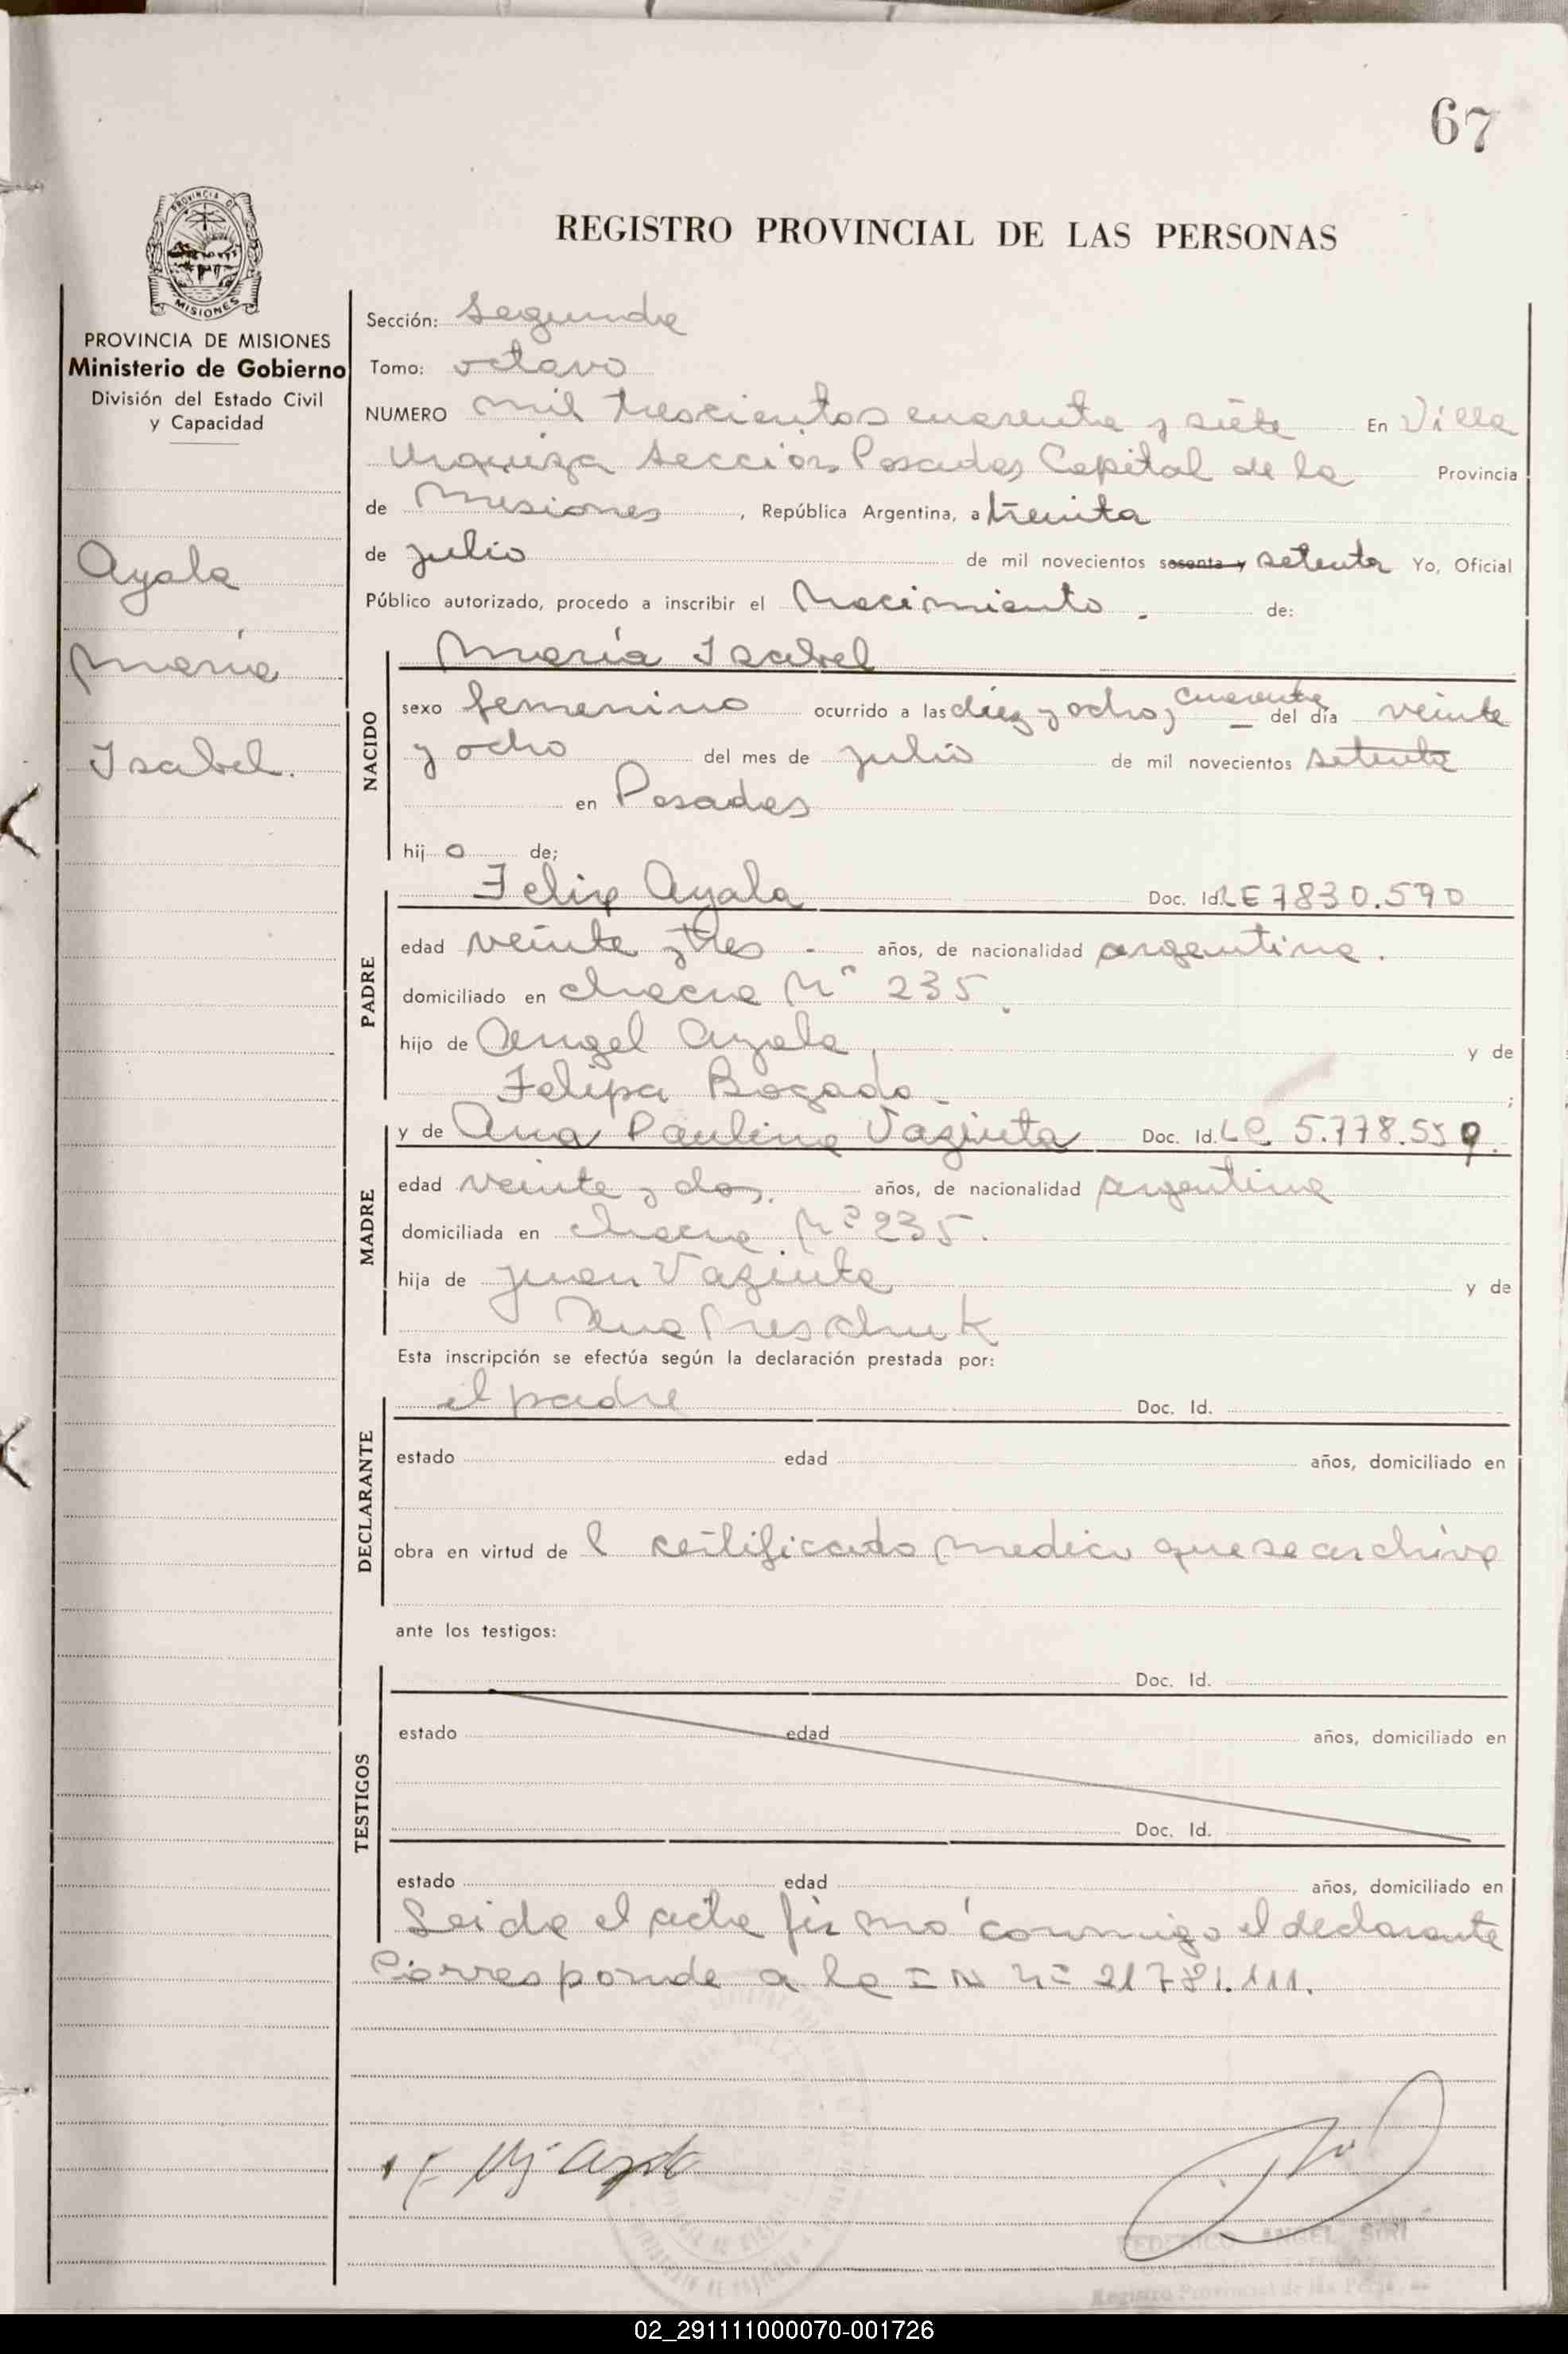 67
PROVINCIA DE
MISIONES
REGISTRO PROVINCIAL DE LAS PERSONAS
PROVINCIA DE MISIONES
Ministerio de Gobierno
División del Estado Civil
y Capacidad
Ayala
María
Isabel.
Sección: Segunda
Tomo: octavo
NUMERO mil trescientos cuarenta y siete En Villa
Urquiza Sección Posadas Capital de la Provincia
de Misiones , República Argentina, a treinta
de julio de mil novecientos sesenta y setenta Yo, Oficial
Público autorizado, procedo a inscribir el Nacimiento . de:
NACIDO
María Isabel
sexo femenino ocurrido a las diez y ocho, cuarenta del día veinte
y ocho del mes de julio de mil novecientos setenta
en Posadas
hij o de;
PADRE
Felix Ayala Doc. Id. LE 7830.590
edad veinte y tres - años, de nacionalidad argentina.
domiciliado en chacra Nº 235.
hijo de Angel Ayala, y de
Felipa Bogado. ;
MADRE
y de Ana Paulina Vaginta Doc. Id. LC 5.778.559.
edad veinte y dos, años, de nacionalidad argentina
domiciliada en chacra Nº 235.
hija de Juan Vaginta y de
Ana
Esta inscripción se efectúa según la declaración prestada por:
DECLARANTE
el padre Doc. Id.
estado edad años, domiciliado en
obra en virtud de l certificado medico que se archiva
ante los testigos:
TESTIGOS
Doc. Id.
estado edad años, domiciliado en
Doc. Id.
estado edad años, domiciliado en
Leida el acta firmó conmigo el declarante
Corresponde a la I N Nº 21781.111.
ANGEL SIRI
Registro Provincial de las
02_291111000070-001726